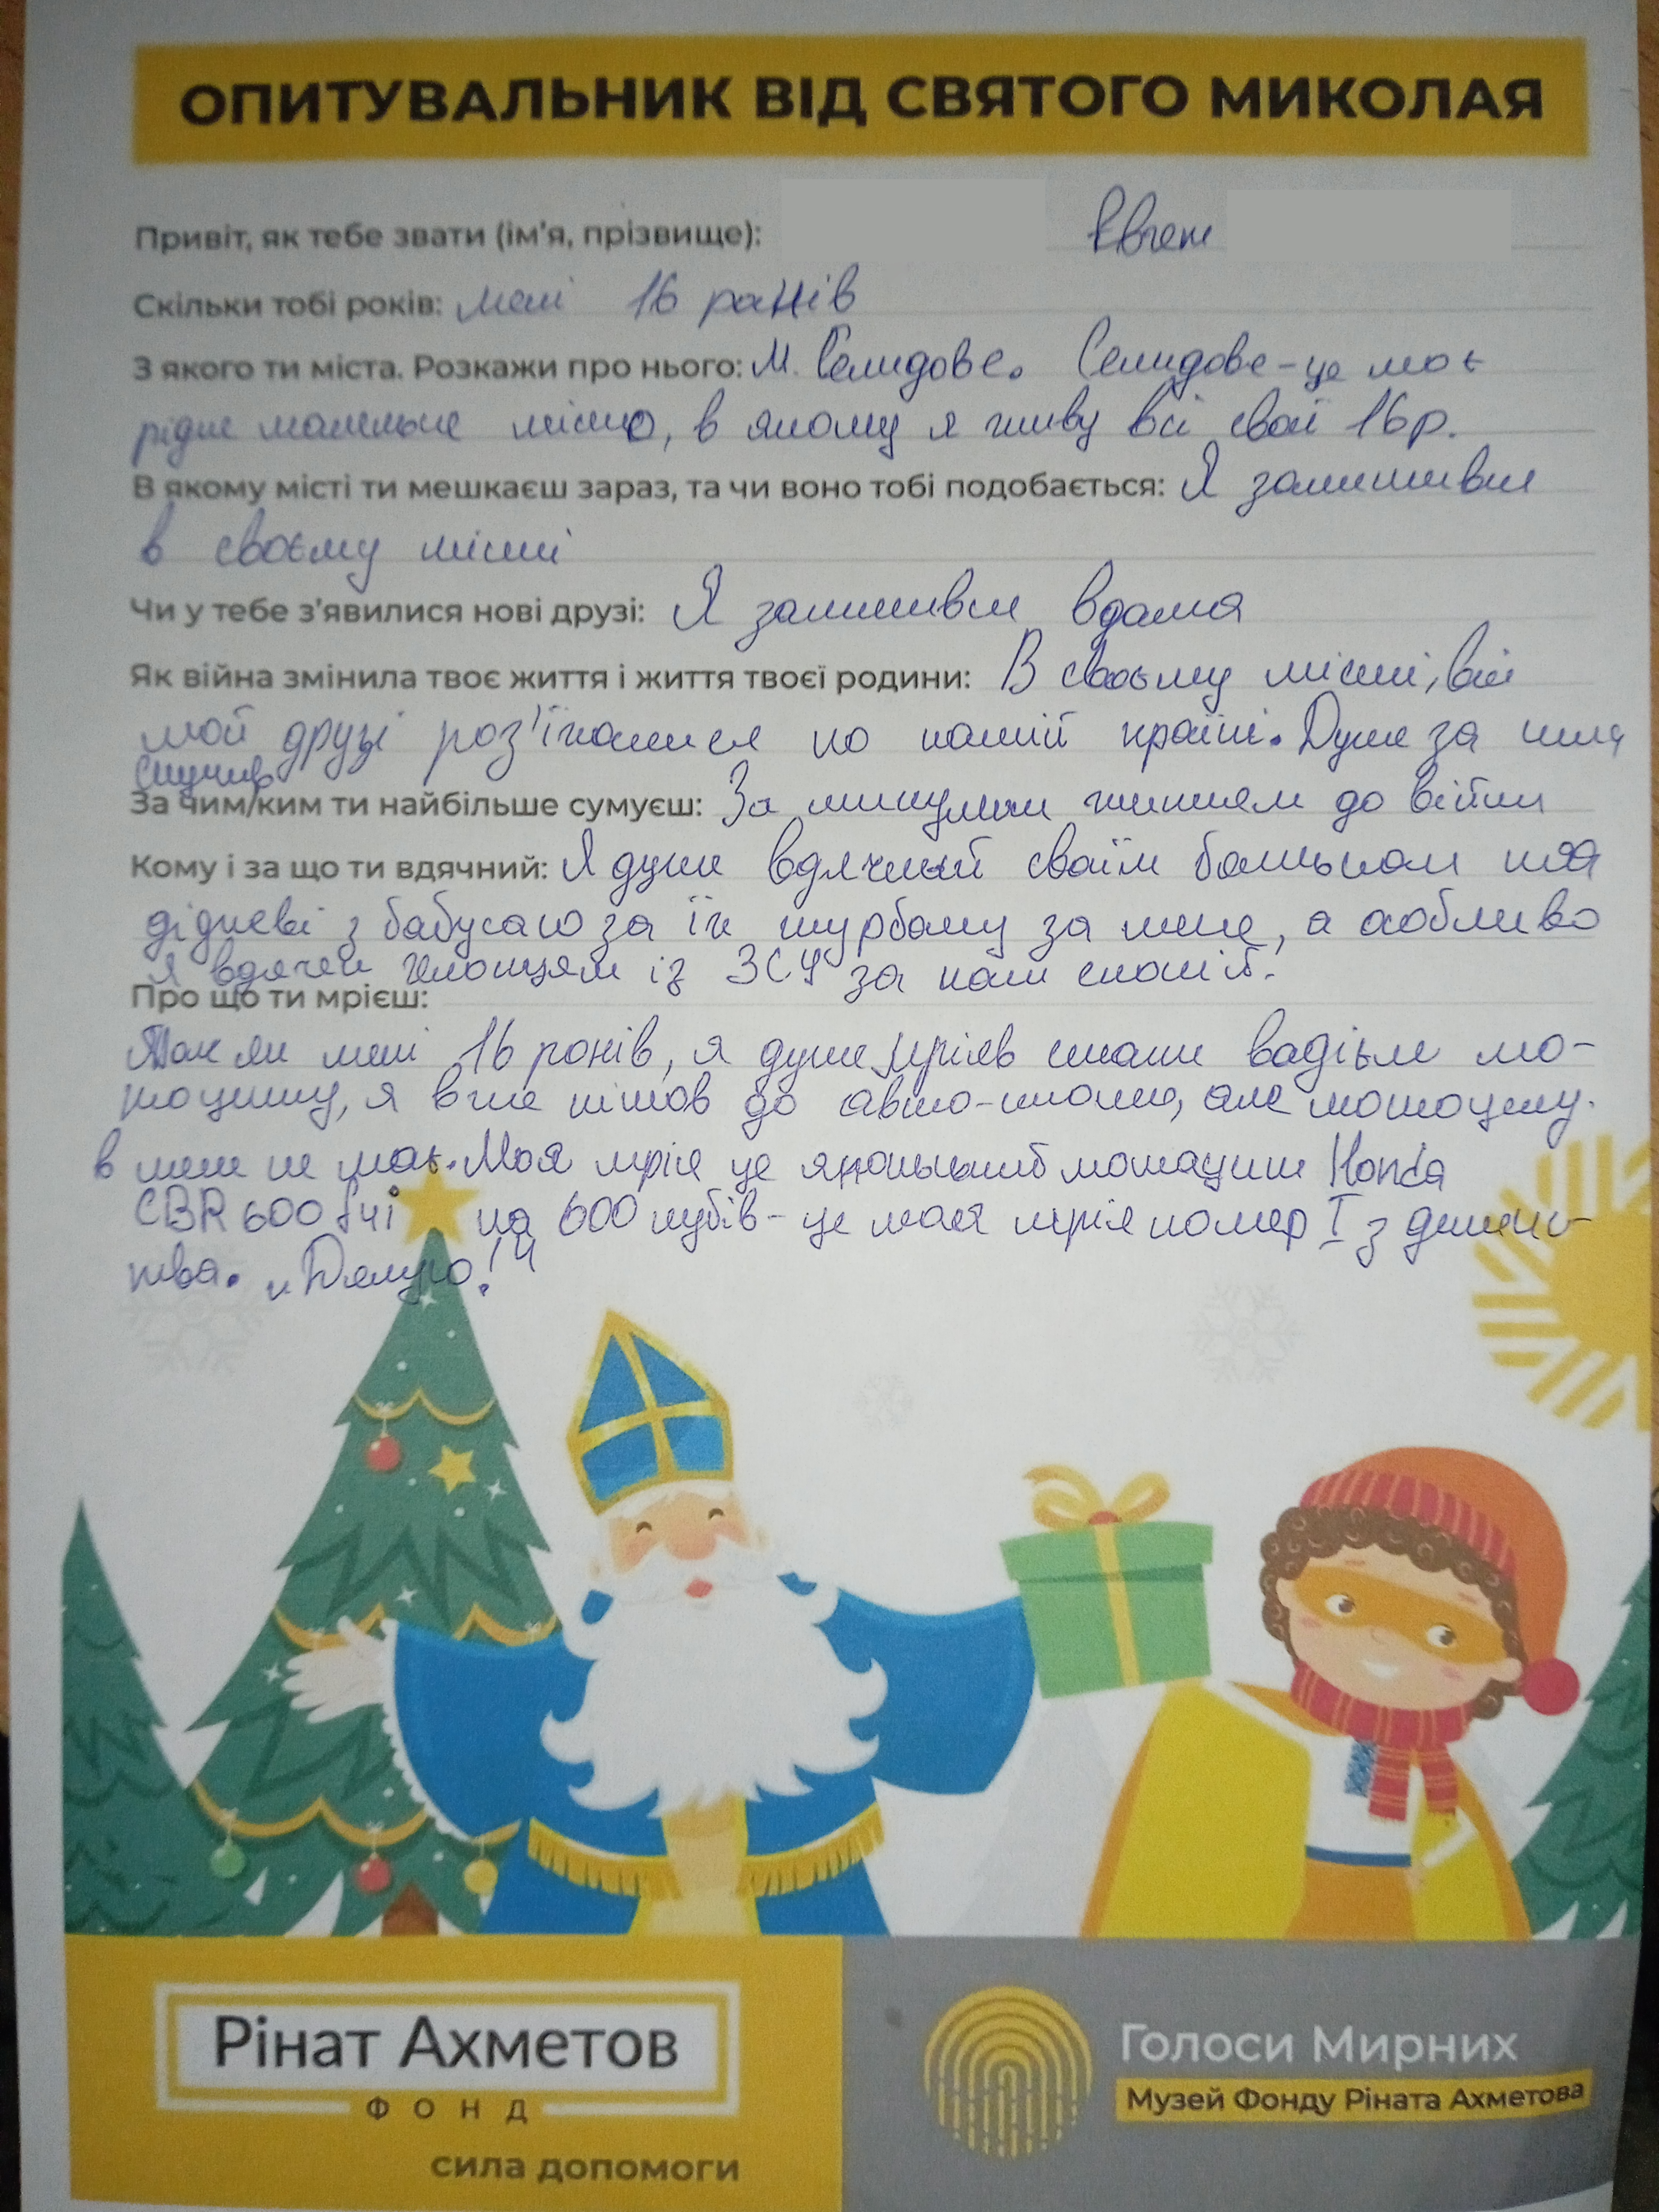 ОПИТУВАЛЬНИК ВІД СВЯТОГО МИКОЛАЯ
Привіт, як тебе звати (ім'я, прізвище): Євген
Скільки тобі років: мені 16 років
З якого ти міста. Розкажи про нього: м. Селидове. Селидове - це моє
рідне маленьке місто, в якому я живу всі свої 16 р.
В якому місті ти мешкаєш зараз, та чи воно тобі подобається: Я залишився
в своєму місті
Чи у тебе з'явилися нові друзі: Я залишився вдома
Як війна змінила твоє життя і життя твоєї родини: В своєму місті, всі
мої друзі роз'їхалися по нашій країні. Дуже за ними
скучив
За чим/ким ти найбільше сумуєш: За минулим життям до війни
Кому і за що ти вдячний: Я дуже вдячний своїм батькам та
дідусеві з бабусею за їх турботу за мене, а особливо
я вдячен хлопцям із ЗСУ за наш спокій.
Про що ти мрієш:
Так як мені 16 років, я дуже мріяв стати водієм мо-
тоциклу, я вже пішов до авто-школи, але мотоциклу
в мене не має. Моя мрія це японський мотоцикл Honda
CBR 600 f4i на 600 кубів - це моя мрія номер I з дитинс-
тва. "Дякую!"
Рінат Ахметов
ФОНД
сила допомоги
Голоси Мирних
Музей Фонду Ріната Ахметова